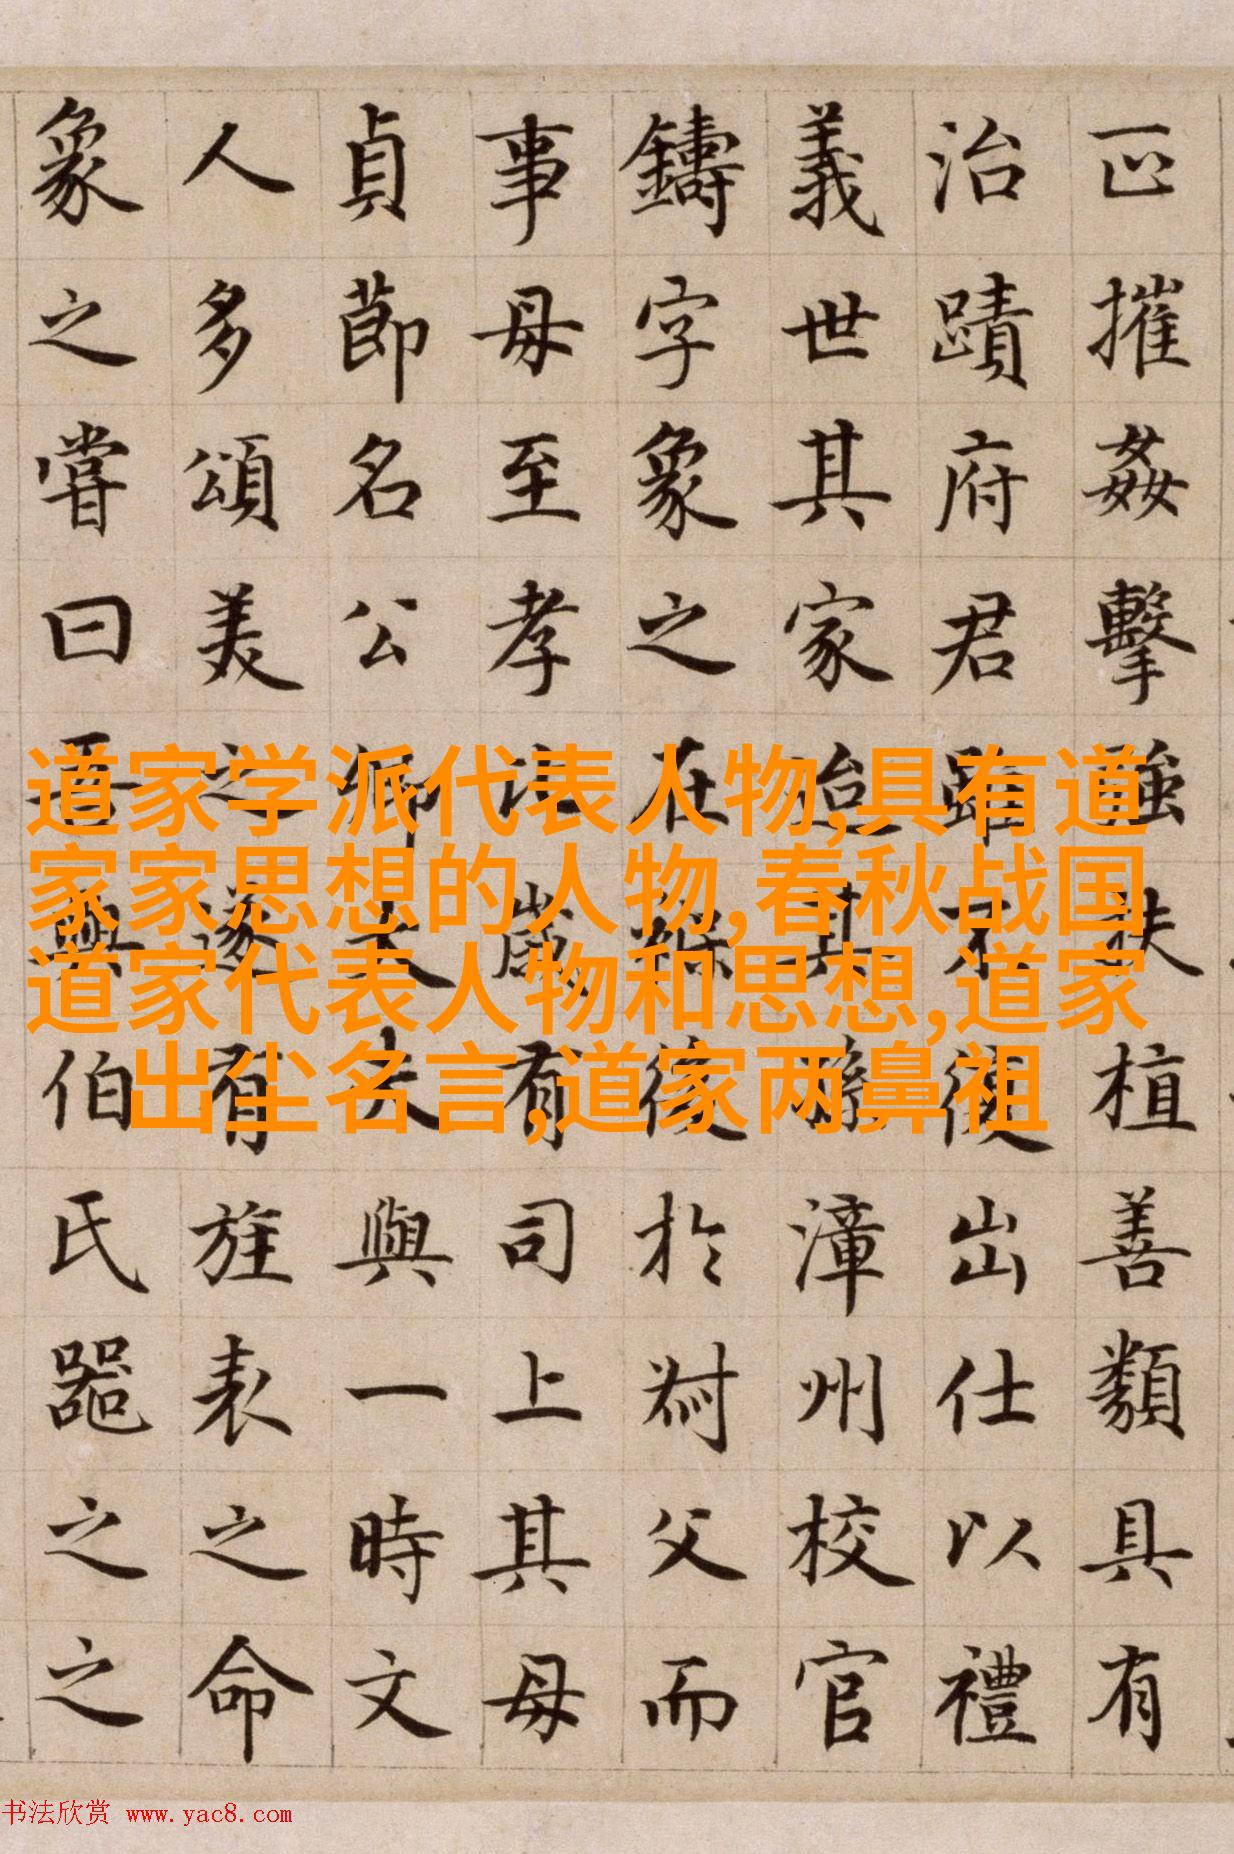 摧姦擊強扶植善類具有
治蹟府君雖不復出仕以禮
義世其家迨其孫漳州校官
鑄字象之在後於父而
事母至孝歲有司上其母
貞節名公卿大夫與一時文
人多頌美之遂有旌表之命
象之嘗曰吾與伯氏器之之
道家学派代表人物,具有道
家家思想的人物,春秋战国
道家代表人物和思想,道家
出尘名言,道家两鼻祖
书法欣赏 www.yac8.com